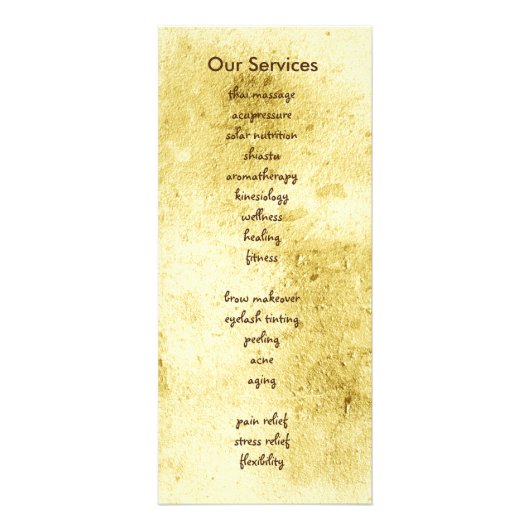 Our Services
thai massage
acupressure
solar nutrition
shiastu
aromatherapy
kinesiology
wellness
healing
fitness
brow makeover
eyelash tinting
peeling
acne
aging
pain relief
stress relief
flexibility